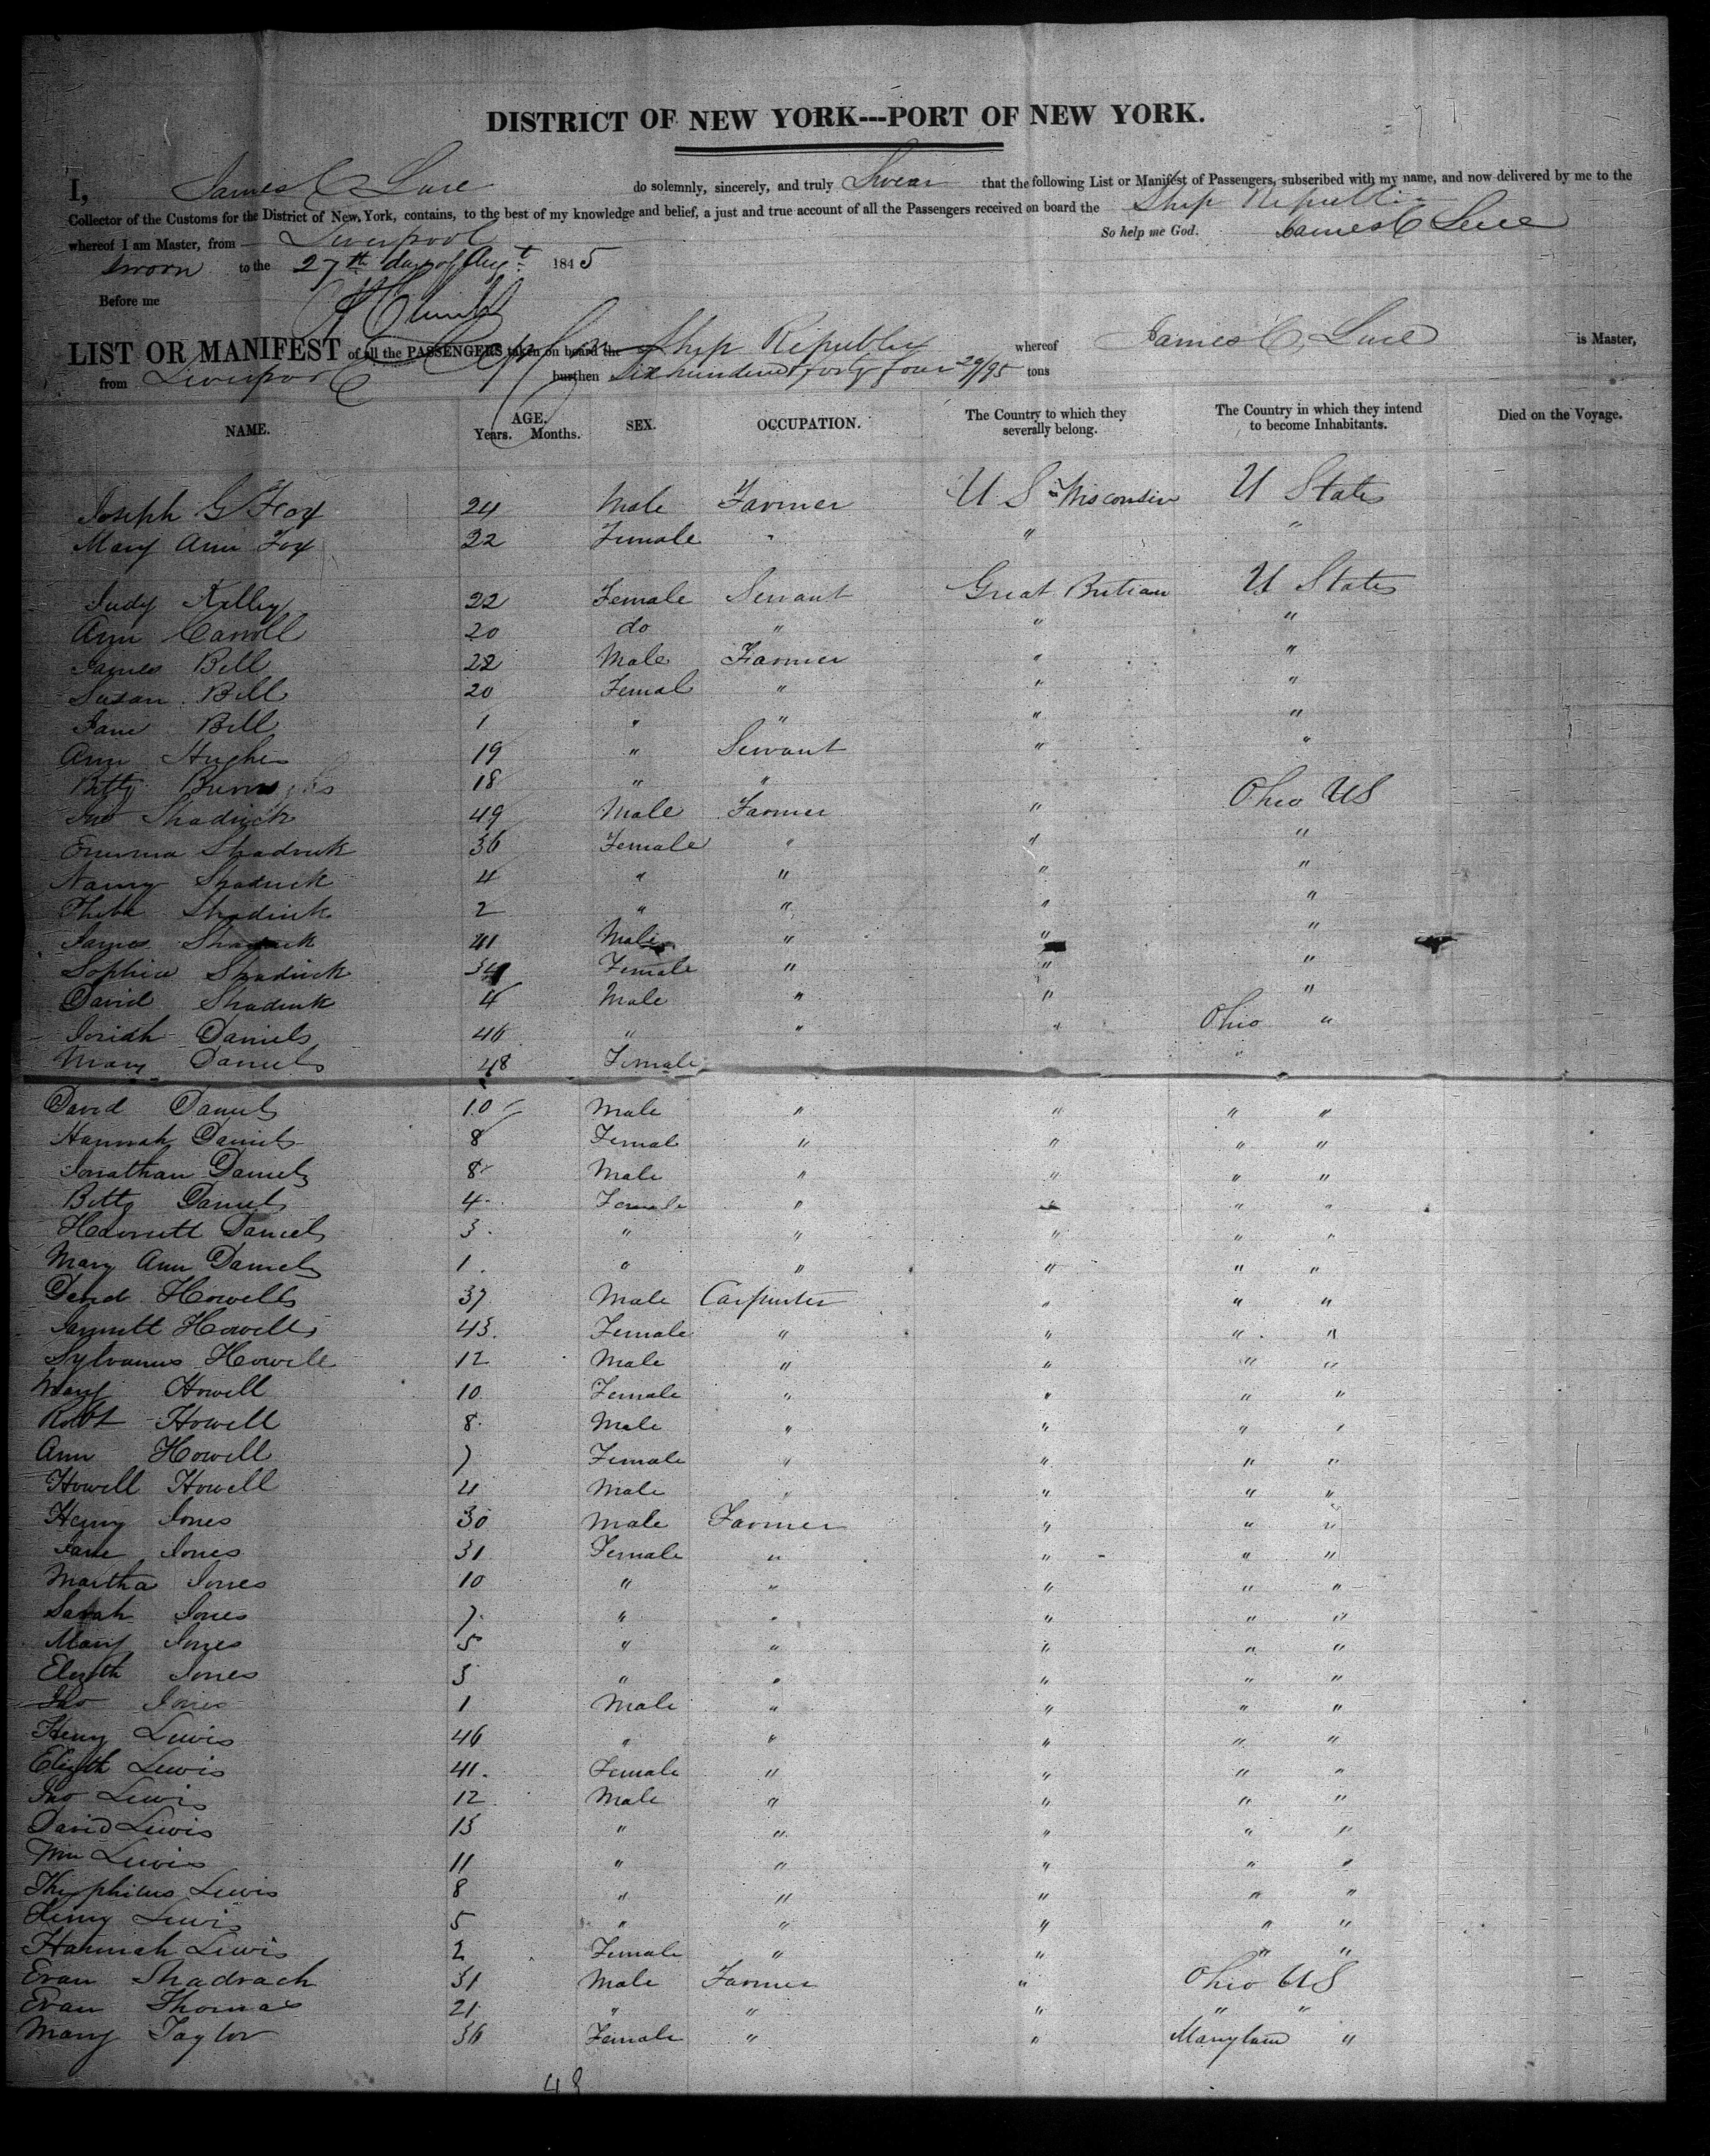 DISTRICT OF NEW YORK---PORT OF NEW YORK.
I, James C Luce do solemnly, sincerely, and truly Swear that the following List or Manifest of Passengers, subscribed with my name, and now delivered by me to the
Collector of the Customs for the District of New York, contains, to the best of my knowledge and belief, a just and true account of all the Passengers received on board the Ship Republic
whereof I am Master, from Liverpool So help me God. James C Luce
sworn to the 27th day of Augt 1845
Before me
LIST OR MANIFEST of all the PASSENGERS taken on board the Ship Republic whereof James C Luce is Master,
from Liverpool burthen Six hundred forty four 29/95 tons
NAME. AGE. Years. Months. SEX. OCCUPATION. The Country to which they severally belong. The Country in which they intend to become Inhabitants. Died on the Voyage.
Joseph G Fox 24 Male Farmer U S Wisconsin U States
Mary Ann Fox 22 Female " " "
Judy Kelley 22 Female Servant Great Britian U States
Ann Carroll 20 do " " "
James Bell 22 Male Farmer " "
Susan Bell 20 Femal " " "
Jane Bell 1 " " " "
Ann Hughes 19 " Servant " "
Betty 18 " "
Jno Shadrick 49 Male Farmer " Ohio US
Emma Shadrick 36 Female " " "
Nancy Shadrick 4 " " " "
Shadrick 2 " " " "
James Shadrick 41 Male " " "
Sophia Shadrick 34 Female " " "
David Shadrick 4 Male " " "
Josiah Daniels 46 " " " Ohio "
Mary Daniels 48 Female "
David Daniels 10 Male " " " "
Hannah Daniels 8 Femal " " " "
Jonathan Daniels 8 Male " " " "
Betty Daniels 4 Female " " " "
Daniels 3 " " " " "
Mary Ann Daniels 1 " " " " "
David Howells 37 Male Carpenter " " "
Howells 43 Female " " " "
Sylvanus Howell 12 Male " " " "
Mary Howell 10 Female " " " "
Robt Howell 8 Male " " " "
Ann Howell 7 Female " " " "
Howell Howell 4 Male " " " "
Henry Jones 30 Male Farmer " " "
Jane Jones 31 Female " " " "
Martha Jones 10 " " " " "
Sarah Jones 7 " " " " "
Mary Jones 5 " " " " "
Elizth Jones 3 " " " " "
Jno Jones 1 Male " " " "
Henry Lewis 46 " " " " "
Elizth Lewis 41 Female " " " "
Jno Lewis 12 Male " " " "
David Lewis 13 " " " " "
Wm Lewis 11 " " " " "
Lewis 8 " " " " "
Henry Lewis 5 " " " " "
Hannah Lewis 2 Female " " " "
Evan Shadrach 31 Male Farmer " Ohio US
Evan Thomas 21 " " " " "
Mary Taylor 36 Female " " Maryland "
48